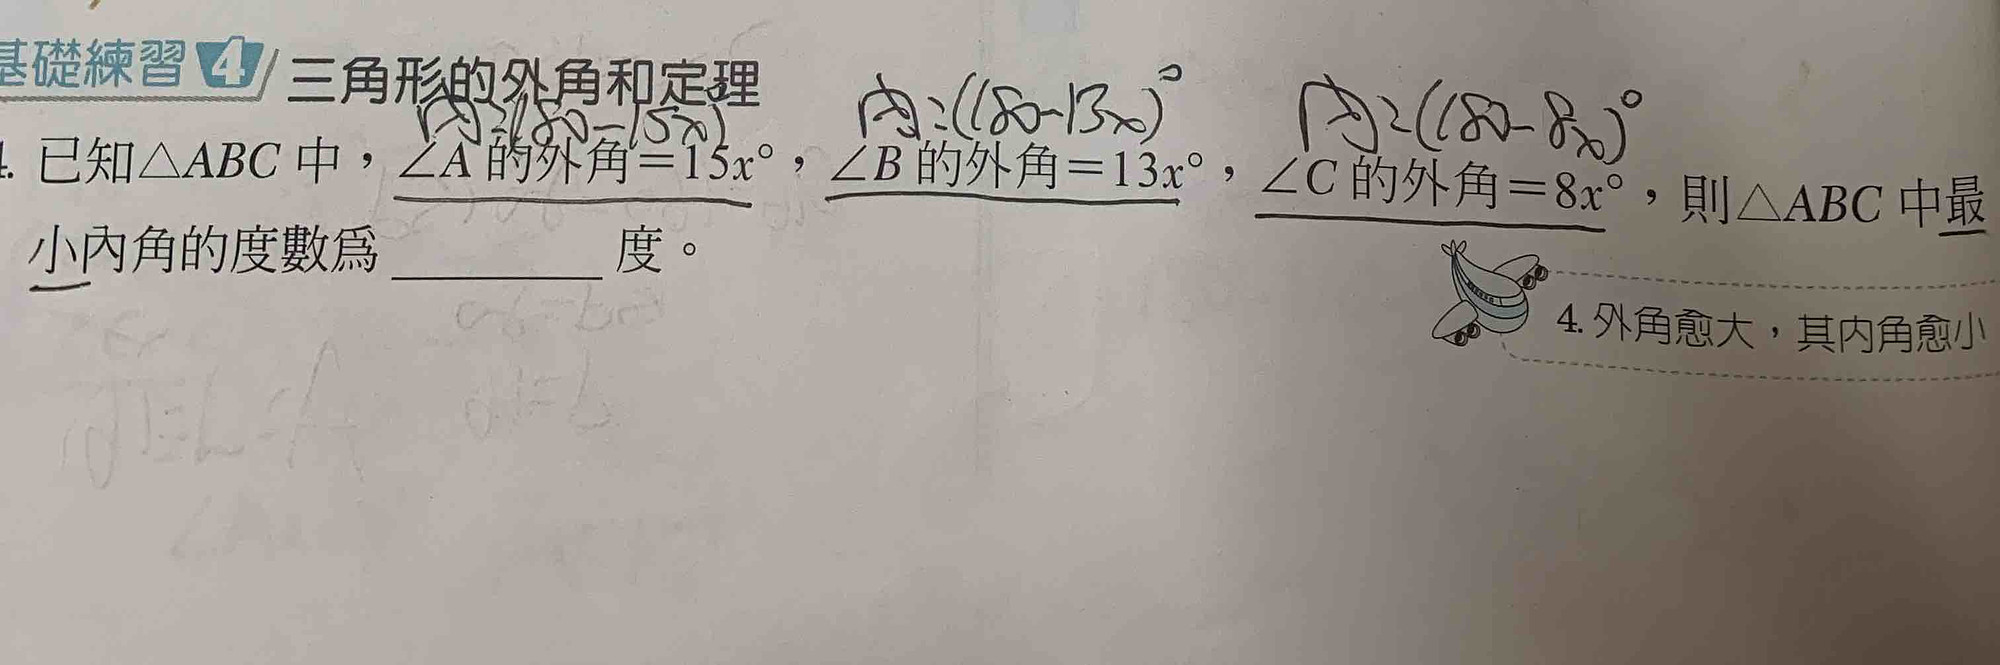 基礎練習 4 三角形的外角和定理
內=(180-15x) 內=(180-13x)° 內=(180-8x)°
4. 已知△ABC 中，∠A 的外角＝15x°，∠B 的外角＝13x°，∠C 的外角＝8x°，則△ABC 中最
小內角的度數為＿＿＿＿度。
4. 外角愈大，其內角愈小